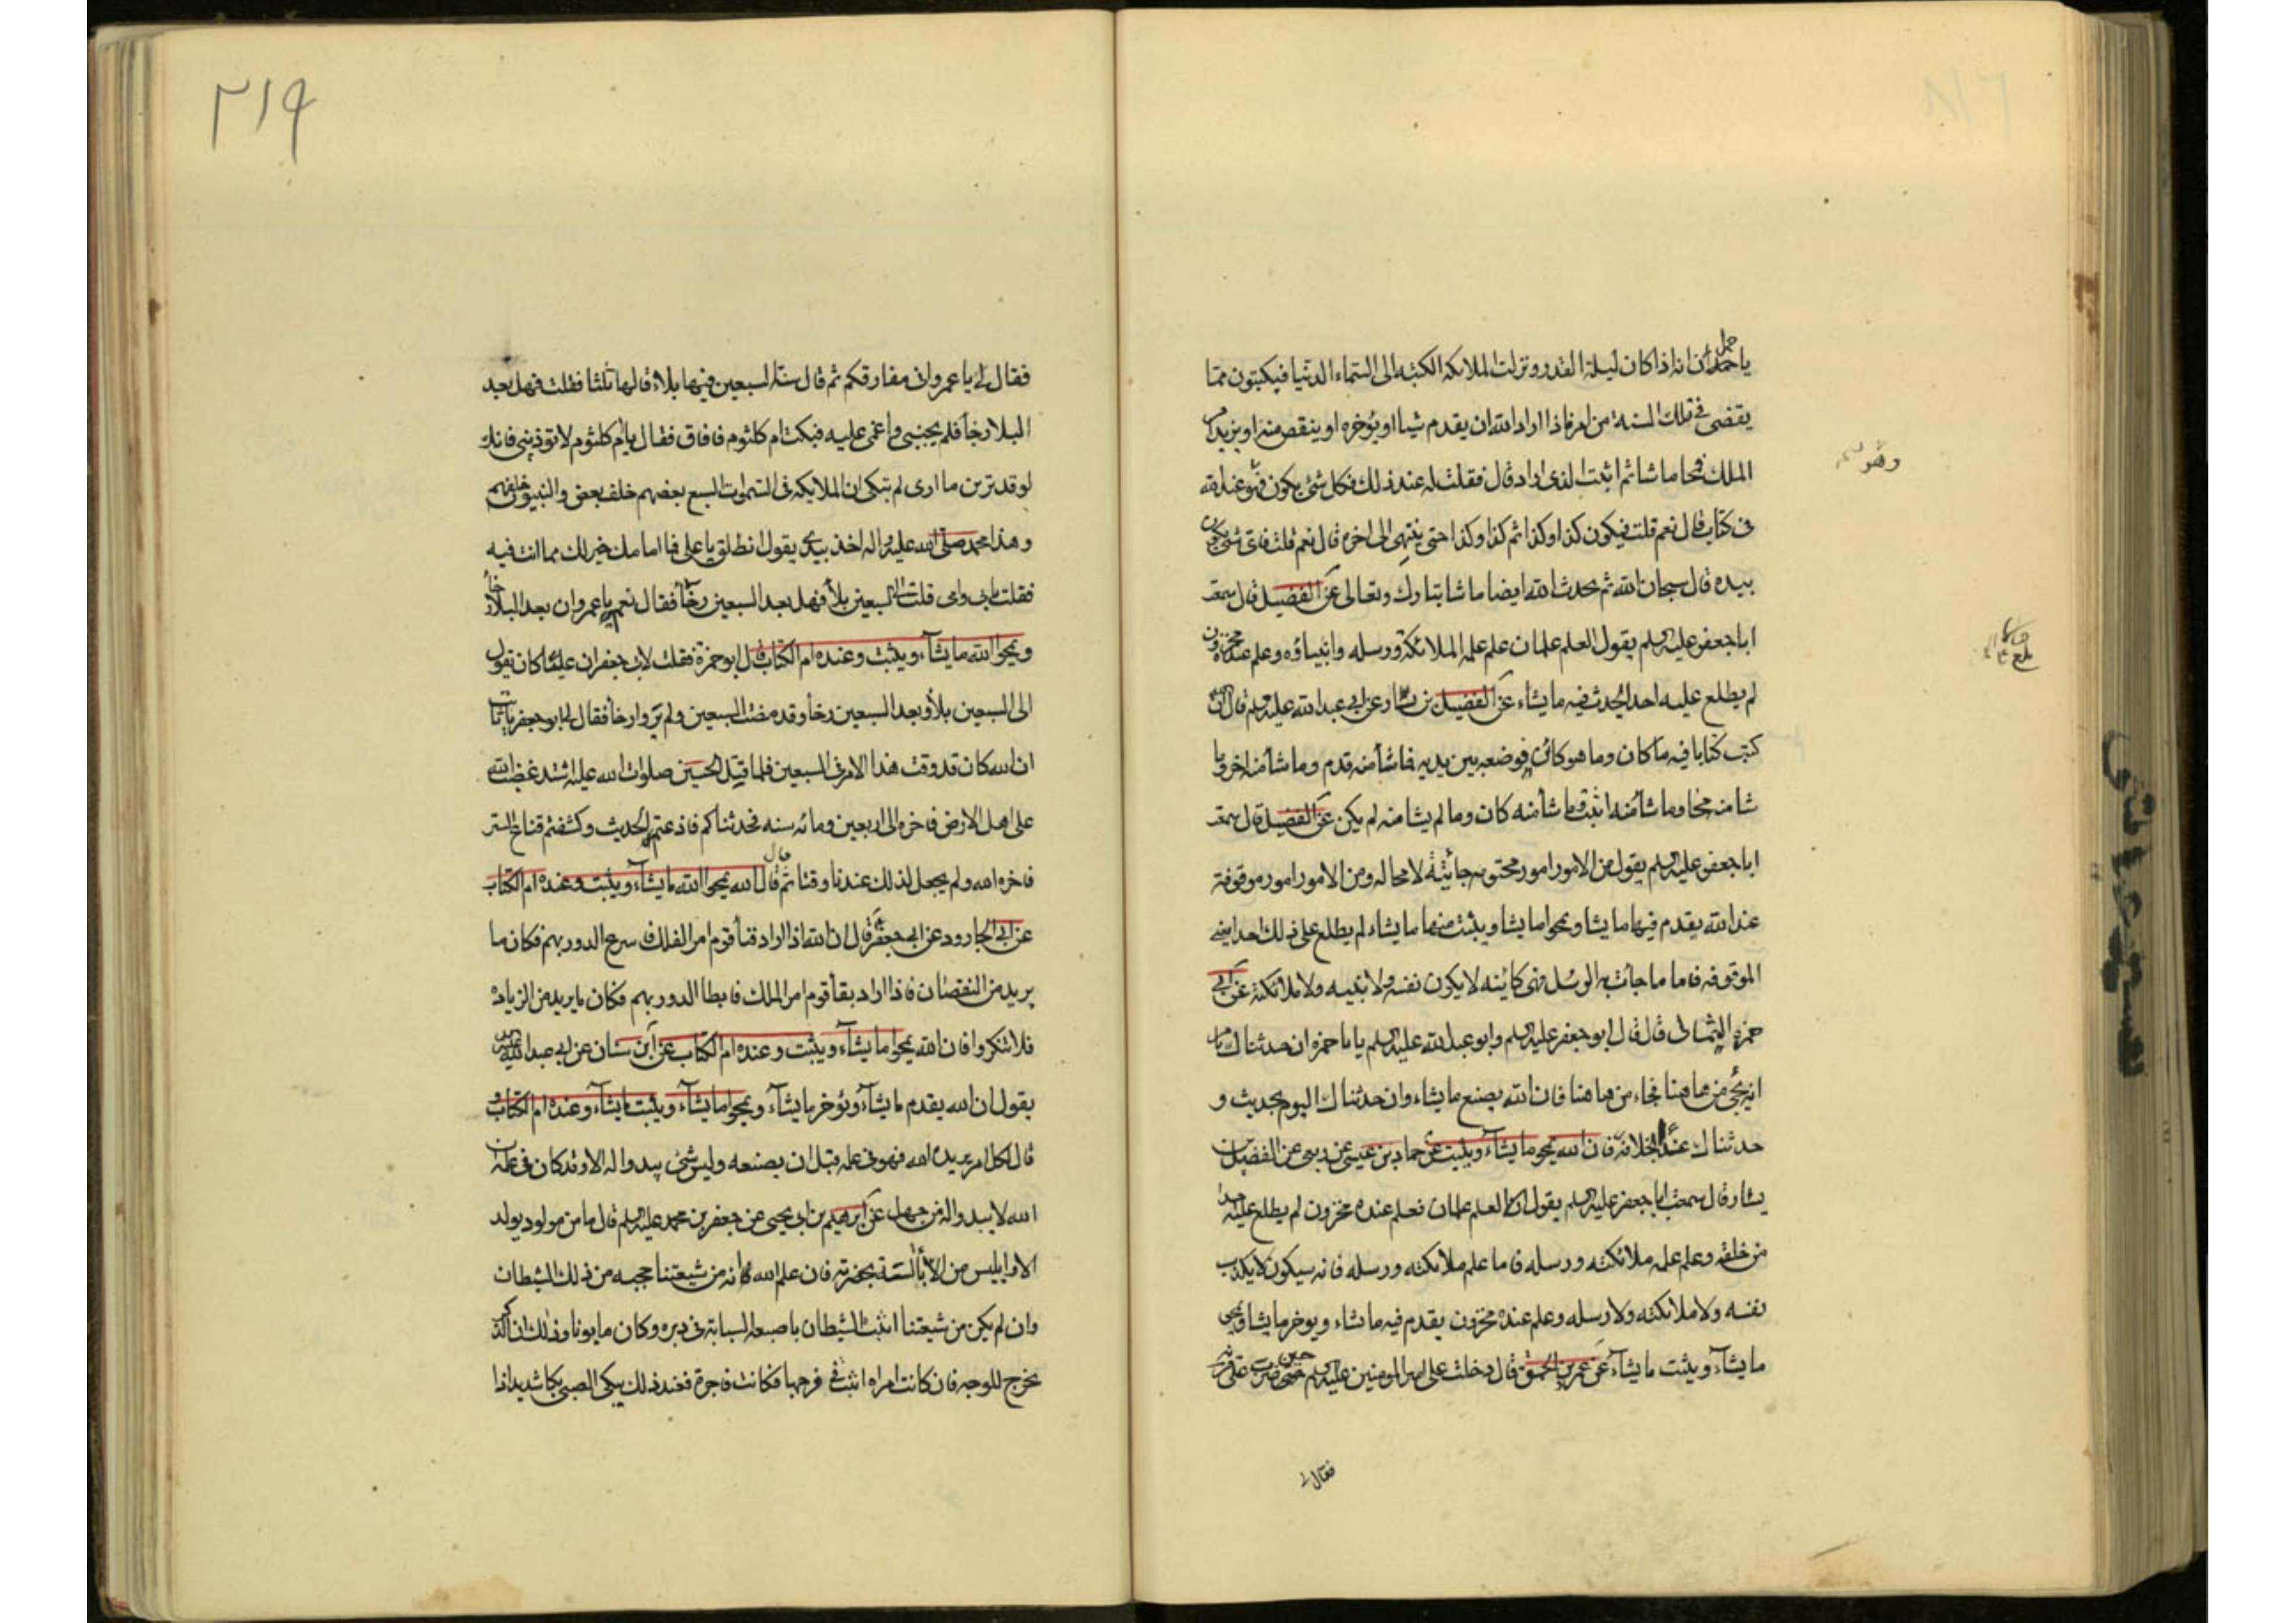 يا حمران انه اذا كان ليلة القدر ونزلت الملائكه الكتبه الى السماء الدنيا فيكتبون مما
يقضى فى تلك السنة من امر فاذا اراد الله ان يقدم شيئا او يؤخره او ينقص منه او يزيد امر
الملك فمحا ما شا ثم اثبت الذى اراد قال فقلت له عند ذلك فكل شئ يكون فهو عند الله
فى كتاب قال نعم قلت فيكون كذا وكذا ثم كذا وكذا حتى ينتهى الى اخره قال نعم قلت فاى شئ يكون
بيده قال سبحان الله ثم يحدث الله ايضا ما شا تبارك وتعالى عن الفضيل قال سمعت
ابا جعفر عليه السلم يقول العلم علمان علم علمه الملائكة ورسله وانبياؤه وعلم عنده مخزون
لم يطلع عليه احد يحدث فيه ما يشاء عن الفضيل بن يسار عن ابى عبد الله عليه السلم قال ان الله
كتب كتابا فيه ما كان وما هو كائن فوضعه بين يديه فما شأ منه قدم وما شأ منه اخر وما
شا منه محا وما شأ منه اثبت وما شأ منه كان وما لم يشا منه لم يكن عن الفضيل قال سمعت
ابا جعفر عليه السلم يقول من الامور امور محتومه جائية لا محاله ومن الامور امور موقوفة
عند الله يقدم فيها ما يشا ويمحوا ما يشا ويثبت منها ما يشاء لم يطلع على ذلك احدا يعنى
الموقوفه فاما ما جائت به الرسل فهى كاينه لا يكون نفسه ولا نبيه ولا ملائكته عن ابى
حمزه الثمالى قال قال ابو جعفر عليه السلم وابو عبد الله عليه السلم يا با حمزه ان حدثناك بامر
انه يجئ من هاهنا فجاء من هاهنا فان الله يصنع ما يشاء وان حدثناك اليوم بحديث و
حدثناك غدا بخلافه فان الله يمحو ما يشآء ويثبت عن حماد بن عيسى عن ربعى عن الفضيل بن
يسار قال سمعت ابا جعفر عليه السلم يقول العلم علمان فعلم عنده مخزون لم يطلع عليه احدا
من خلقه وعلم علمه ملائكته ورسله فاما علم ملائكته ورسله فانه سيكون لا يكذب
نفسه ولا ملائكته ولا رسله وعلم عنده مخزون يقدم فيه ما يشاء ويوخر ما يشا ويمحى
ما يشآء ويثبت ما يشآء عن عمرو بن الحمق قال دخلت على امير المومنين عليه السلم حين ضرب على قرنه
فقال لى
وهو
بلغ
٢١٩
فقال لى يا عمرو انى مفارقكم ثم قال سنة السبعين فيها بلاء قالها ثلثا فقلت فهل بعد
البلا رخأ فلم يجبنى واغمى عليه فبكت ام كلثوم فافاق فقال يا ام كلثوم لا توذينى فانك
لو قد ترين ما ارى لم تبكى ان الملايكه فى السموات السبع بعضهم خلف بعض والنبيون خلفهم
وهذا محمد صلى الله عليه واله اخذ بيدى يقول انطلق يا على فما امامك خير لك مما انت فيه
فقلت بابى وامى قلت الى السبعين بلأ فهل بعد السبعين رخأ فقال نعم يا عمرو ان بعد البلاء رخأ
ويمحوا الله ما يشآء ويثبت وعنده ام الكتاب قال ابو حمزة فقلت لابى جعفر ان عليا كان يقول
الى السبعين بلأ وبعد السبعين رخأ وقد مضت السبعين ولم يروا رخأ فقال لى ابو جعفر يا ثابت
ان الله كان قد وقت هذا الامر فى السبعين فلما قتل الحسين صلوات الله عليه اشتد غضب الله
على اهل الارض فاخره الى اربعين ومائه سنه فحدثناكم فاذعتم الحديث وكشفتم قناع الستر
فاخره الله ولم يجعل لذلك عندنا وقتا ثم قال قال الله يمحوا الله ما يشآء ويثبت وعنده ام الكتاب
عن ابى الجارود عن ابى جعفر قال ان الله اذا اراد فنأ قوم امر الفلك فاسرع الدور بهم فكان ما
يريد من النقصان فاذا اراد بقأ قوم امر الفلك فابطا الدور بهم فكان ما يريد من الزياده
فلا تنكروا فان الله يمحوا ما يشآء ويثبت وعنده ام الكتاب عن ابن سنان عن ابى عبد الله عليه السلم
يقول ان الله يقدم ما يشآء ويؤخر ما يشآء ويمحوا ما يشآء ويثبت ما يشآء وعنده ام الكتاب و
قال لكل امر يريده الله فهو فى علمه قبل ان يصنعه وليس شئ يبدو له الا وقد كان فى علمه ان
الله لا يبدو له من جهل عن ابرهيم بن ابى يحيى عن جعفر بن محمد عليه السلم قال ما من مولود يولد
الا وابليس من الابالسة بحضرته فان علم الله انه من شيعتنا حجبه من ذلك الشيطان
وان لم يكن من شيعتنا اثبت الشيطان باصبعه السبابة فى دبره وكان مابونا وذلك ان الذكر
يخرج للوجه فان كانت امراه اثبت فى فرجها فكانت فاجرة فعند ذلك يبكى الصبى بكا شديدا اذا